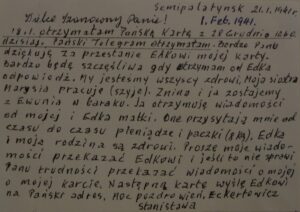 Semipałatyńsk 21.1.1941r.
Wielce Szanowny Panie! 1. Feb. 1941.
18.1. otrzymałam Pańską Kartę z 28 Grudnia 1940
dzisiaj Pański Telegram otrzymałam. Bardzo Panu
dziękuję za przesłanie Edkowi mojej karty.
Bardzo będę szczęśliwa gdy otrzymam od Edka
odpowiedź. My jesteśmy wszyscy zdrowi. Moja siostra
Marysia pracuje (szyje). Znina i ja zostajemy
z Ewunią w baraku. Ja otrzymuję wiadomości
od mojej i Edka matki. One przysyłają mnie od
czasu do czasu pieniądze i paczki (8 kg). Edka
i moja rodzina są zdrowi. Proszę moje wiado-
mości przekazać Edkowi i jeśli to nie sprawi
Panu trudności przekazać wiadomości o mojej
o mojej karcie. Następną kartę wyślę Edkowi
na Pański adres. Moc pozdrowień. Eckertowicz
Stanisława